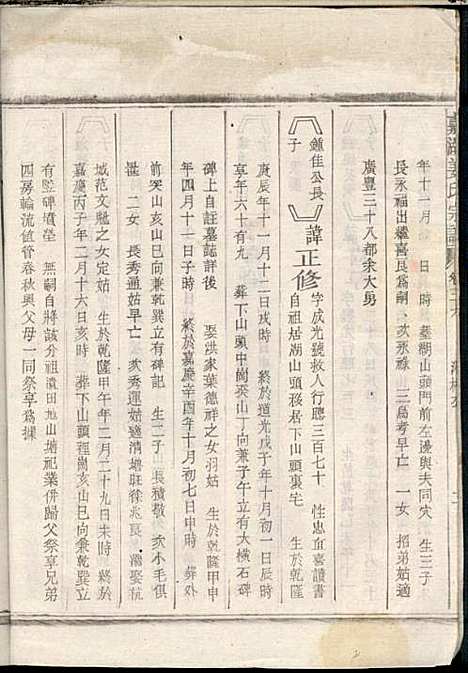 嘉湖姜氏宗譜 卷之六
年十一月 日 時 塟湖山頭門前左邊與夫同穴 生三子
長永福出繼喜良爲嗣 次永祿 三烏考早亡 一女 招弟姑適
廣豐三十八都余大勇
鍾佳公長子 諱正修 字成光號救人行聰三百七十 性忠直喜讀書
自祖居湖山頭移居下山頭裏宅 生於乾隆
庚辰年十一月十二日戌時 終於道光戊子年十月初一日辰時
享年六十有九 葬下山頭中崗癸山丁向兼子午立有大橫石碑
碑上自註墓誌詳後 娶洪家葉德祥之女羽姑 生於乾隆甲申
年四月十一日子時 終於嘉慶辛酉年十月初七日申時 葬外
前突山亥山巳向兼乾巽立有碑記 生二子 長積敬 次小毛俱
殤 二女 長秀通姑早亡 次秀運姑適清塘塍徐兆良 繼娶杭
城范文魁之女定姑 生於乾隆甲午年二月二十九日未時 終於
嘉慶丙子年二月十六日亥時 葬下山頭裡崗亥山巳向兼乾巽立
有墜碑墳塋 無嗣自將該分祖遺田地山塘祀業併歸父祭享兄弟
四房輪流值管春秋與父母一同祭享爲據